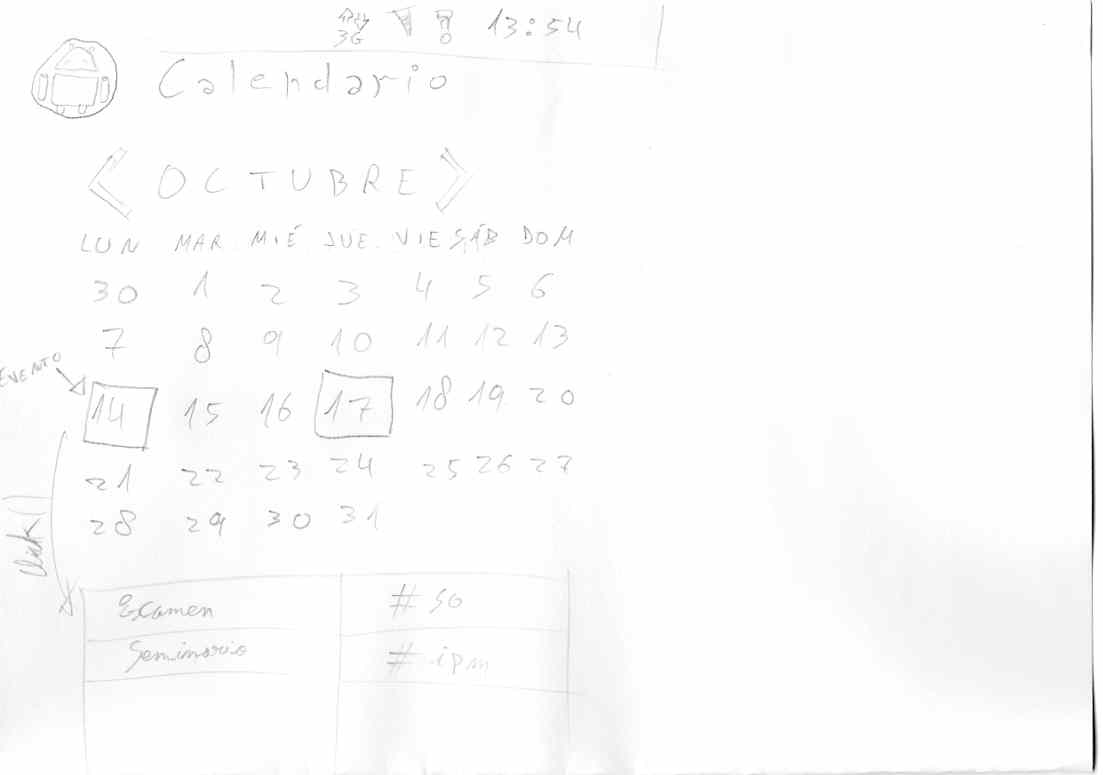 3G 13:54
Calendario
< OCTUBRE >
LUN MAR. MIÉ JUE. VIE SÁB DOM
30 1 2 3 4 5 6
7 8 9 10 11 12 13
EVENTO
14 15 16 17 18 19 20
21 22 23 24 25 26 27
28 29 30 31
click!
Examen #so
Seminario #ipm